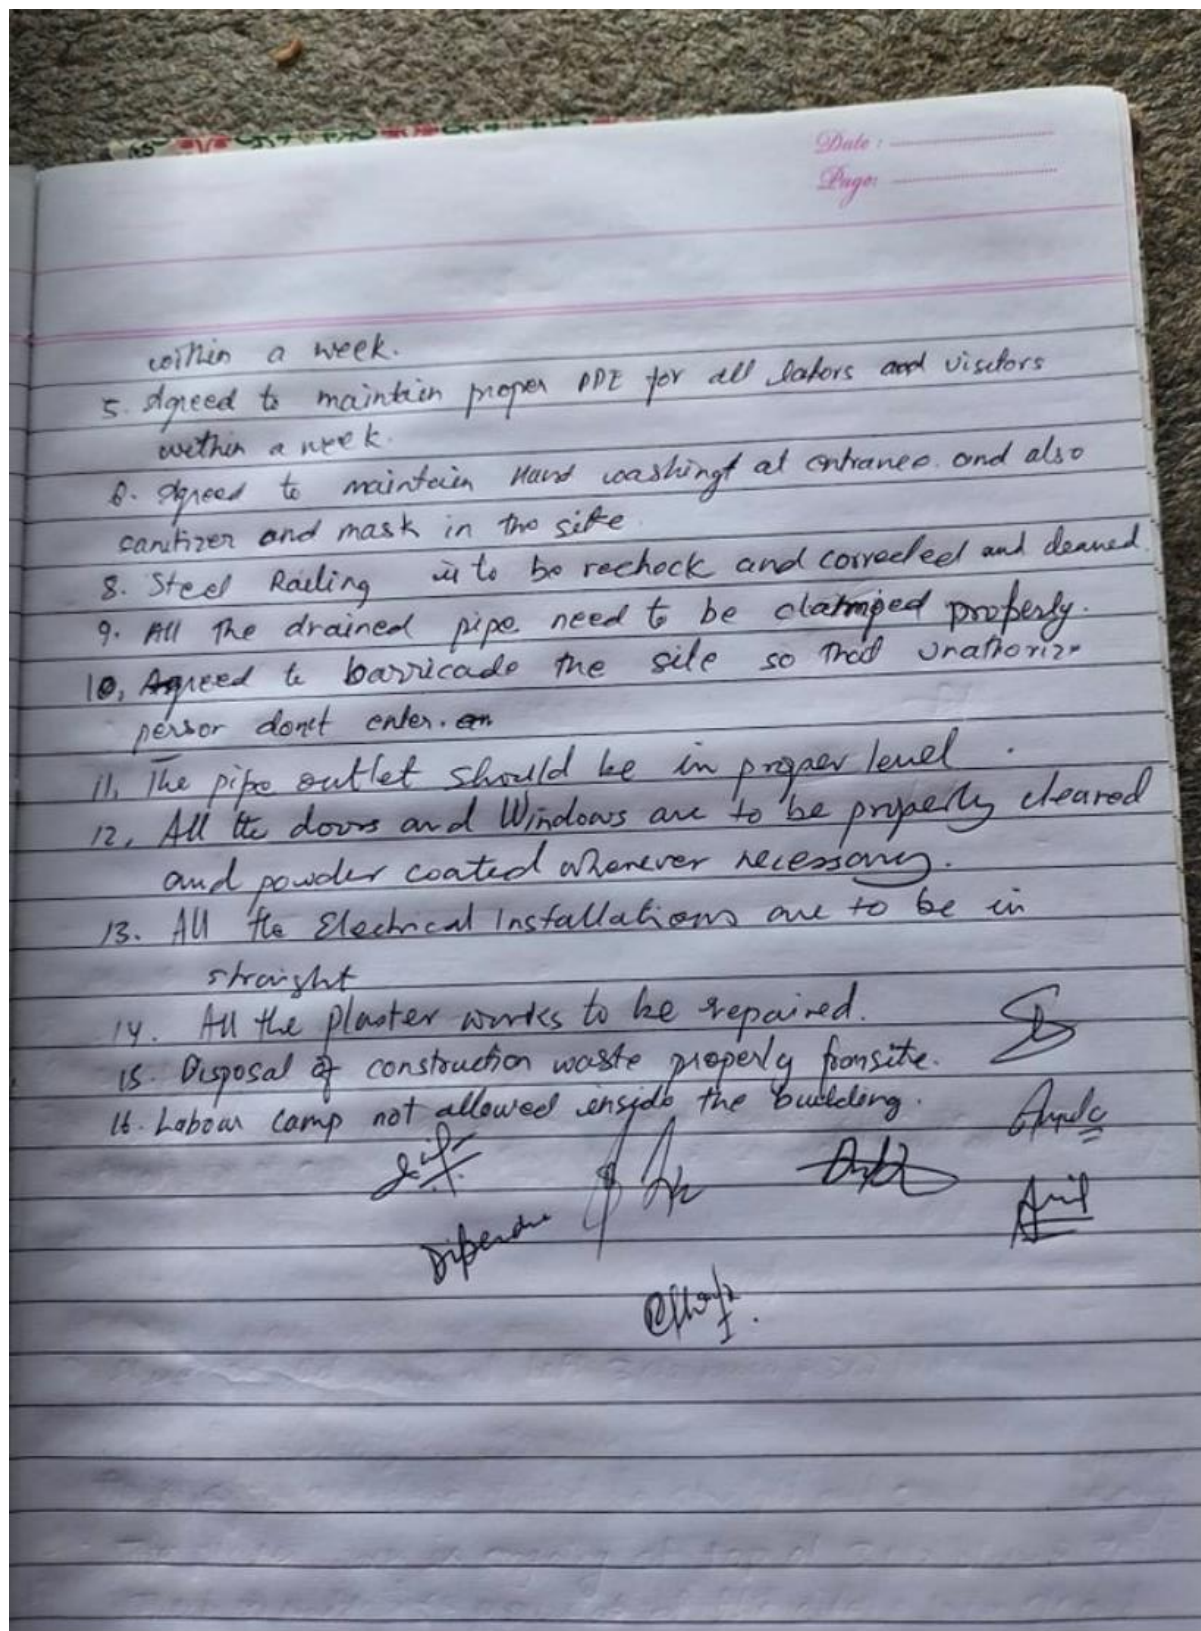 Date :
Page:
within a week.
5. Agreed to maintain proper PPE for all labors and visitors
within a week.
6. Agreed to maintain Hand washingt at entrance. and also
sanitizer and mask in the site.
8. Steel Railing is to be recheck and corrected and cleaned.
9. All the drained pipe need to be clamped properly.
10. Agreed to barricade the site so that unathoriz
person don't enter.
11. The pipe outlet should be in proper level.
12. All the doors and Windows are to be properly cleared
and powder coated whenever necessary.
13. All the Electrical Installations are to be in
straight
14. All the Plaster works to be repaired.
15. Disposal of construction waste properly from site.
16. Labour camp not allowed inside the building.
Dipendra
Anil